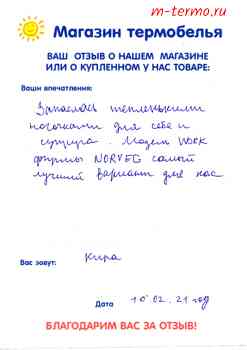 m-termo.ru
Магазин термобелья
ВАШ ОТЗЫВ О НАШЕМ МАГАЗИНЕ
ИЛИ О КУПЛЕННОМ У НАС ТОВАРЕ:
Ваши впечатления:
Запаслась тёпленькими
носочками для себя и
супруга. Модель
фирмы NORVEG самый
лучший вариант для нас
Вас зовут: Кира
Дата 10 02. 21 год
БЛАГОДАРИМ ВАС ЗА ОТЗЫВ!